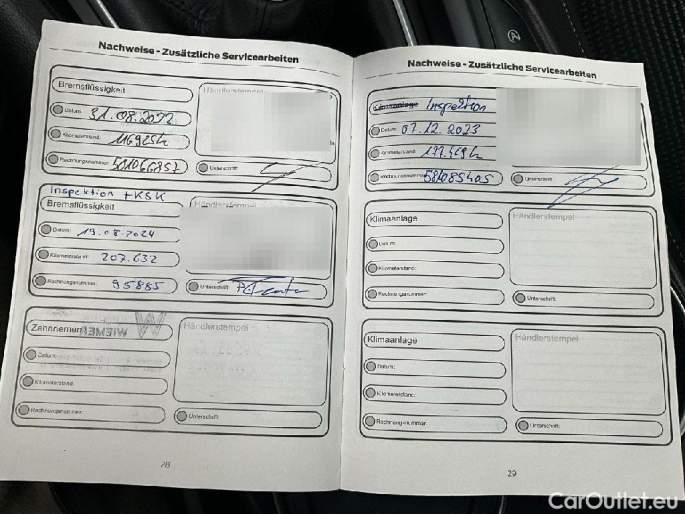 Nachweise - Zusätzliche Servicearbeiten
Bremsflüssigkeit
Händlerstempel
Datum: 31.08.2022
Kilometerstand:
Rechnungsnummer:
Unterschrift:
Inspektion + KSK
Bremsflüssigkeit
Händlerstempel
Datum: 19.08.2024
Kilometerstand: 207.632
Rechnungsnummer: 95885
Unterschrift:
Zahnriemen
WIEMER
Händlerstempel
Datum:
Kilometerstand:
Rechnungsnummer:
Unterschrift:
28
Nachweise - Zusätzliche Servicearbeiten
Klimaanlage Inspektion
Datum: 07.12.2023
Kilometerstand:
Rechnungsnummer: 581085405
Unterschrift:
Klimaanlage
Händlerstempel
Datum:
Kilometerstand:
Rechnungsnummer:
Unterschrift:
Klimaanlage
Händlerstempel
Datum:
Kilometerstand:
Rechnungsnummer:
Unterschrift:
29
CarOutlet.eu